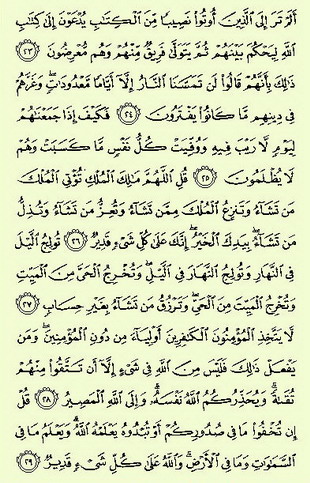 أَلَمْ تَرَ إِلَى ٱلَّذِينَ أُوتُوا۟ نَصِيبًا مِّنَ ٱلْكِتَـٰبِ يُدْعَوْنَ إِلَىٰ كِتَـٰبِ
ٱللَّهِ لِيَحْكُمَ بَيْنَهُمْ ثُمَّ يَتَوَلَّىٰ فَرِيقٌ مِّنْهُمْ وَهُم مُّعْرِضُونَ ٢٣
ذَٰلِكَ بِأَنَّهُمْ قَالُوا۟ لَن تَمَسَّنَا ٱلنَّارُ إِلَّآ أَيَّامًا مَّعْدُودَٰتٍ ۖ وَغَرَّهُمْ
فِى دِينِهِم مَّا كَانُوا۟ يَفْتَرُونَ ٢٤ فَكَيْفَ إِذَا جَمَعْنَـٰهُمْ
لِيَوْمٍ لَّا رَيْبَ فِيهِ وَوُفِّيَتْ كُلُّ نَفْسٍ مَّا كَسَبَتْ وَهُمْ
لَا يُظْلَمُونَ ٢٥ قُلِ ٱللَّهُمَّ مَـٰلِكَ ٱلْمُلْكِ تُؤْتِى ٱلْمُلْكَ
مَن تَشَآءُ وَتَنزِعُ ٱلْمُلْكَ مِمَّن تَشَآءُ وَتُعِزُّ مَن تَشَآءُ وَتُذِلُّ
مَن تَشَآءُ ۖ بِيَدِكَ ٱلْخَيْرُ ۖ إِنَّكَ عَلَىٰ كُلِّ شَىْءٍ قَدِيرٌ ٢٦ تُولِجُ ٱلَّيْلَ
فِى ٱلنَّهَارِ وَتُولِجُ ٱلنَّهَارَ فِى ٱلَّيْلِ ۖ وَتُخْرِجُ ٱلْحَىَّ مِنَ ٱلْمَيِّتِ
وَتُخْرِجُ ٱلْمَيِّتَ مِنَ ٱلْحَىِّ ۖ وَتَرْزُقُ مَن تَشَآءُ بِغَيْرِ حِسَابٍ ٢٧
لَّا يَتَّخِذِ ٱلْمُؤْمِنُونَ ٱلْكَـٰفِرِينَ أَوْلِيَآءَ مِن دُونِ ٱلْمُؤْمِنِينَ ۖ وَمَن
يَفْعَلْ ذَٰلِكَ فَلَيْسَ مِنَ ٱللَّهِ فِى شَىْءٍ إِلَّآ أَن تَتَّقُوا۟ مِنْهُمْ
تُقَىٰةً ۗ وَيُحَذِّرُكُمُ ٱللَّهُ نَفْسَهُۥ ۗ وَإِلَى ٱللَّهِ ٱلْمَصِيرُ ٢٨ قُلْ
إِن تُخْفُوا۟ مَا فِى صُدُورِكُمْ أَوْ تُبْدُوهُ يَعْلَمْهُ ٱللَّهُ ۗ وَيَعْلَمُ مَا فِى
ٱلسَّمَـٰوَٰتِ وَمَا فِى ٱلْأَرْضِ ۗ وَٱللَّهُ عَلَىٰ كُلِّ شَىْءٍ قَدِيرٌ ٢٩